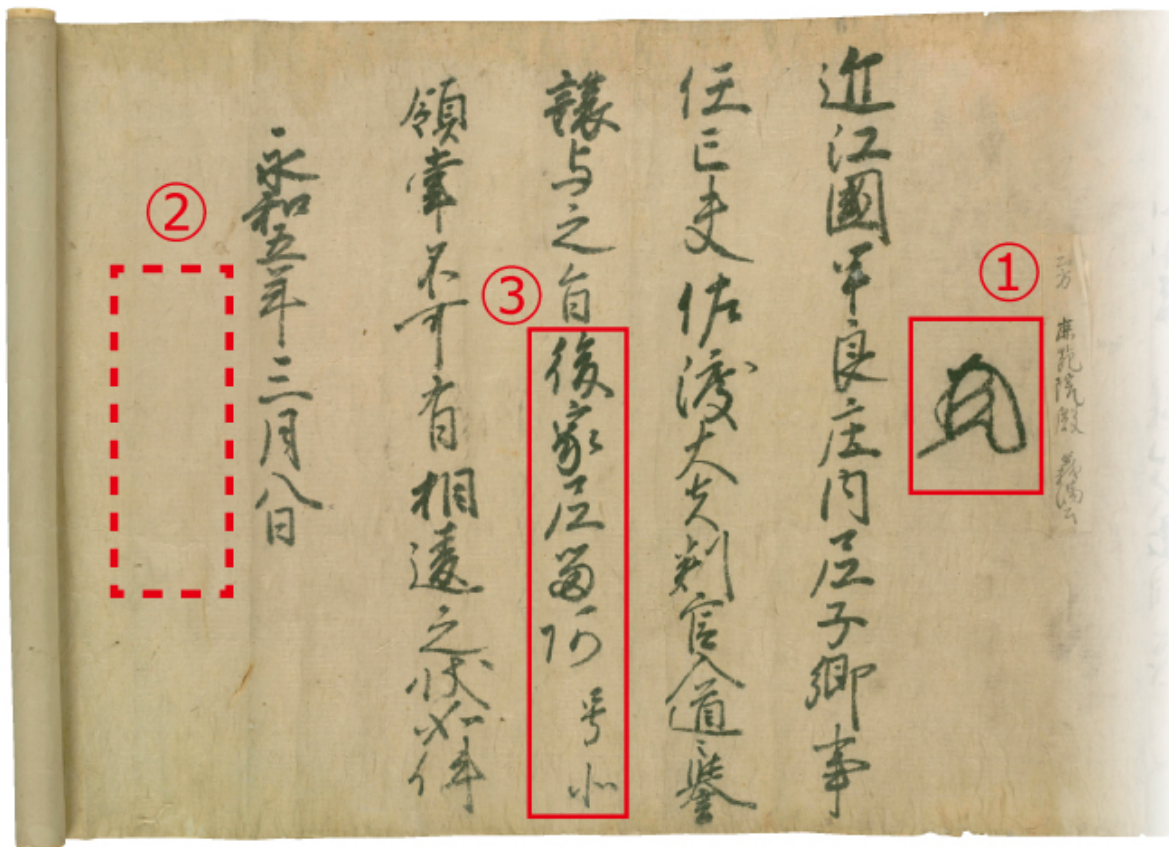 鹿苑院殿 義満公
①
近江國甲良庄内尼子郷事
任亡夫佐渡大夫判官入道々譽
讓与之旨後家尼留阿号北
③
領掌不可有相違之状如件
永和五年三月八日
②